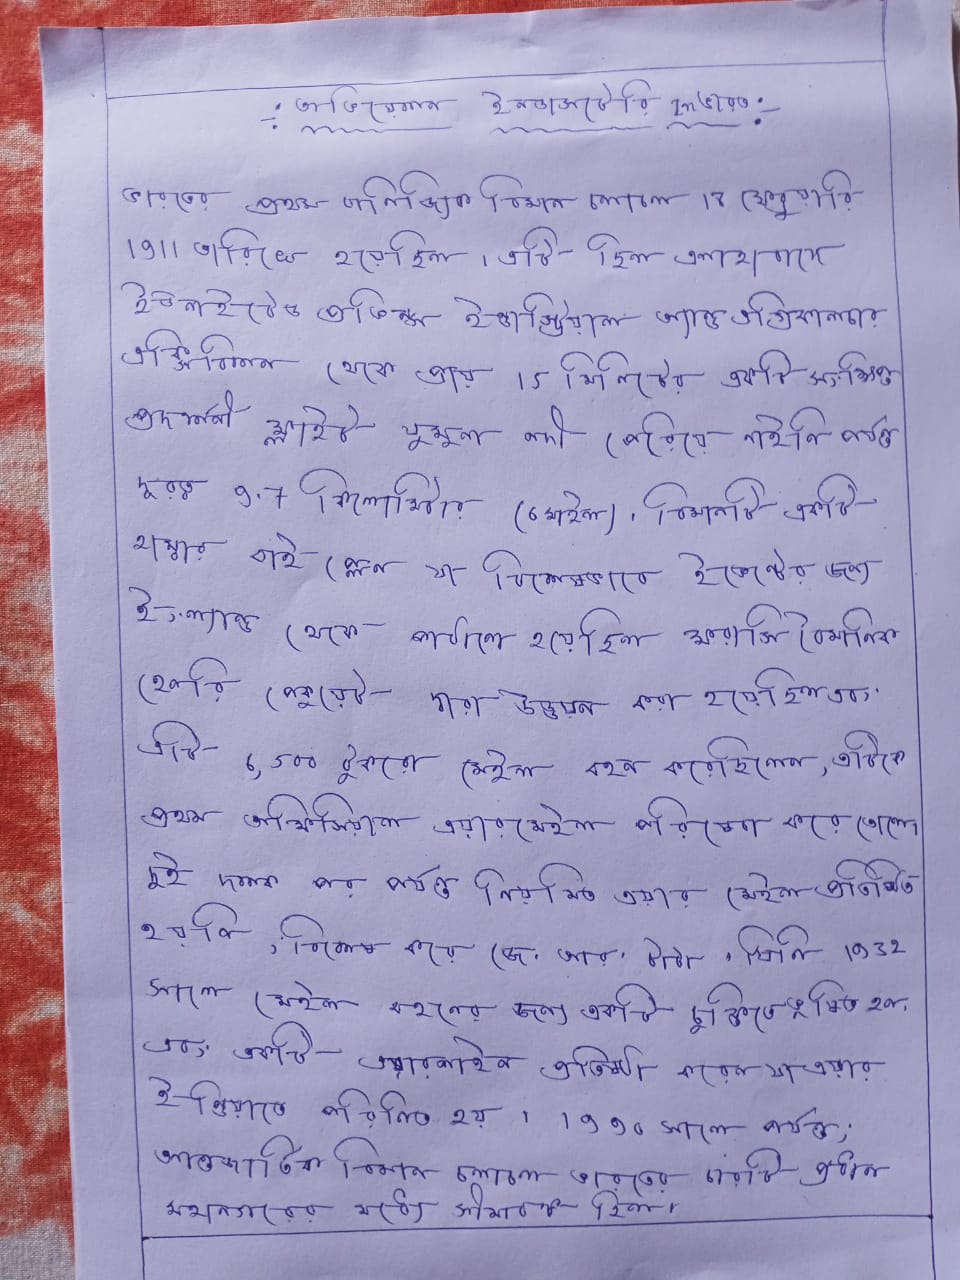 -: অভিয়েশন ইনডাসটেরি ইন ভারত :-
ভারতের প্রথম বাণিজ্যিক বিমান চলাচল 18 ফেব্রুয়ারি
1911 তারিখে হয়েছিল । এটি ছিল এলাহাবাদে
ইউনাইটেড প্রভিন্স ইন্ডাস্ট্রিয়াল অ্যান্ড এগ্রিকালচার
এক্সিবিশন থেকে প্রায় 15 মিনিটের একটি সংক্ষিপ্ত
প্রদর্শনী ফ্লাইট যুমুনা নদী পেরিয়ে নাইনি পর্যন্ত
দূরত্ব 9.7 কিলোমিটার (৬ মাইল), বিমানটি একটি
হাম্বার বাই প্লেন যা বিশেষভাবে ইভেন্টের জন্য
ইংল্যান্ড থেকে পাঠানো হয়েছিল ফরাসি বৈমানিক
হেনরি পেকুয়েট দ্বারা উড্ডয়ন করা হয়েছিল এবং
এটি ৬,৫০০ টুকরো মেইল বহন করেছিলেন, এটিকে
প্রথম অফিসিয়াল এয়ারমেইল পরিষেবা করে তোলে,
দুই দশক পর পর্যন্ত নিয়মিত এয়ার মেইল প্রতিষ্ঠিত
হয়নি, বিশেষ করে জে. আর. টাটা, যিনি 1932
সালে মেইল বহনের জন্য একটি চুক্তিতে ভূষিত হন,
এবং একটি এয়ারলাইন প্রতিষ্ঠা করেন যা এয়ার
ইন্ডিয়াতে পরিনিত হয় । ১৯৯০ সালে পর্যন্ত,
আন্তর্জাতিক বিমান চলাচল ভারতের চারটি প্রধান
মহানগরের মধ্যে সীমাবদ্ধ ছিল।